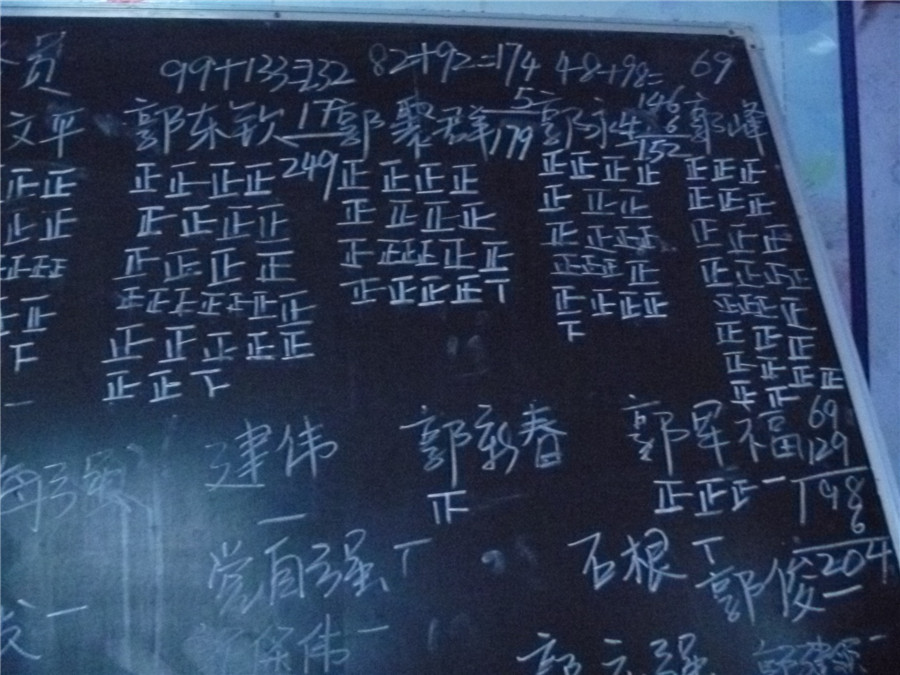 员 99+133=232 82+92=174 48+98= 69
文平 郭东钦 17 郭聚群 5 郭永 146 郭峰
249 179 6 152
正正 正正正正 正正正正 正正正正 正正正
正正 正正正正 正正正正 正正正 正正正
正正正 正正正正 正正正正正 正正正正 正正正
正正 正正正正正正 正正正正丅 正正正正 正正正正
下 正正正正正 正正正正 正正正正
一 正正下 下 正正正
正正正正
正正
海强 建伟 郭新春 郭军福 69
一 正 正正正一 129
198
6
204
党自强丅 石根丅 郭俊一
一 保伟一 郭 强 一